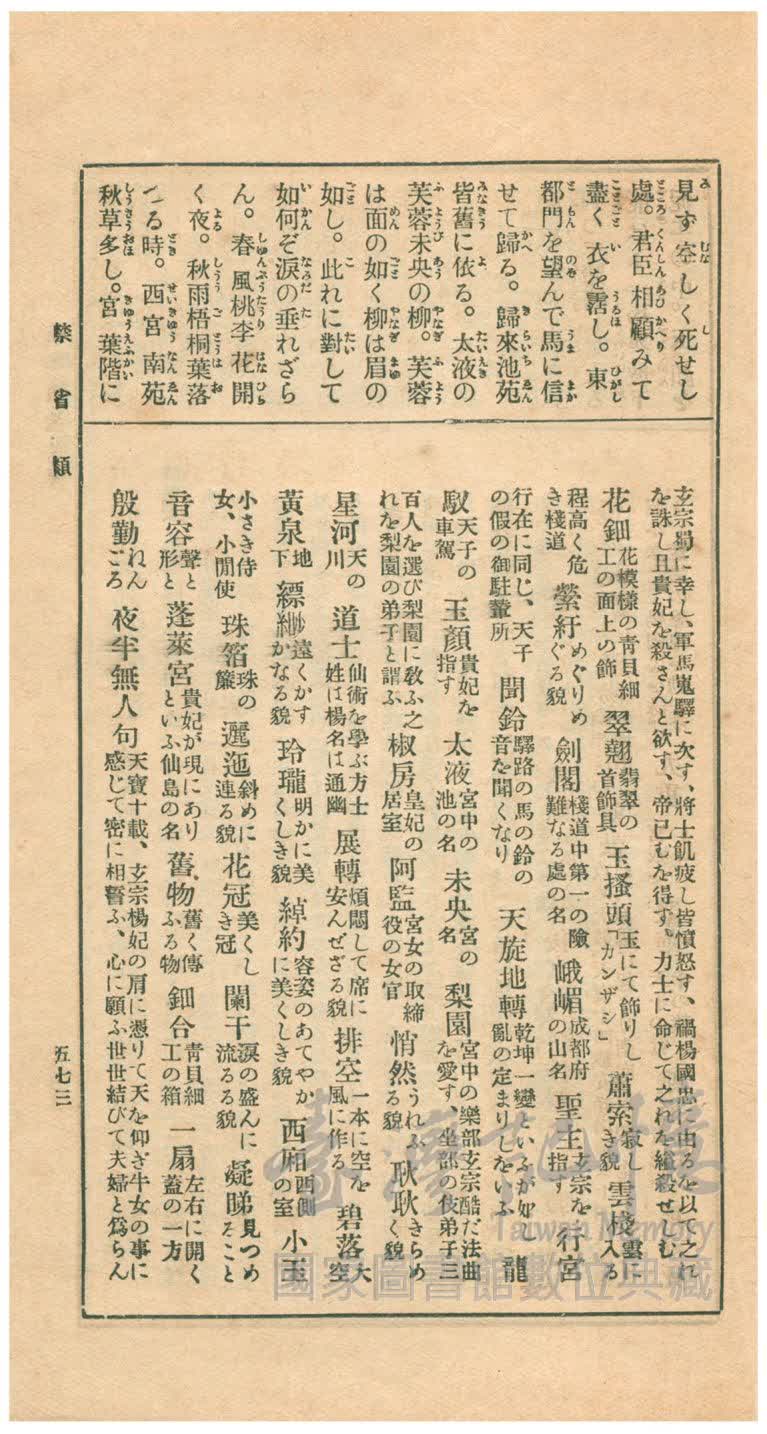 見ず空しく死せし
處。君臣相顧みて
盡く衣を霑し。東
都門を望んで馬に信
せて歸る。歸來池苑
皆舊に依る。太液の
芙蓉未央の柳。芙蓉
は面の如く柳は眉の
如し。此れに對して
如何ぞ淚の垂れざら
ん。春風桃李花開
く夜。秋雨梧桐葉落
つる時。西宮南苑
秋草多し。宮葉階に
玄宗蜀に幸し、軍馬嵬驛に次す、將士飢疲し皆憤怒す、禍楊國忠に由るを以て之れ
を誅し且貴妃を殺さんと欲す、帝已むを得ず。力士に命じて之れを縊殺せしむ
花鈿 花模樣の靑貝細工の面上の飾 翠翹 翡翠の首飾具 玉搔頭 玉にて飾りし「カンザシ」 蕭索 寂しき貌 雲棧 雲に入る
程高く危き棧道 縈紆 めぐりめぐる貌 劍閣 棧道中第一の險難なる處の名 峨嵋 成都府の山名 聖主 玄宗を指す 行宮
行在に同じ、天子の假の御駐輦所 聞鈴 驛路の馬の鈴の音を聞くなり 天旋地轉 乾坤一變といふが如し亂の定まりしをいふ 龍
馭 天子の車駕 玉顏 貴妃を指す 太液 宮中の池の名 未央 宮の名 梨園 宮中の樂部玄宗酷だ法曲を愛す、坐部の伎弟子三
百人を選び梨園に敎ふ之れを梨園の弟子と謂ふ 椒房 皇妃の居室 阿監 宮女の取締役の女官 悄然 うれふる貌 耿耿 きらめく貌
星河 天の川 道士 仙術を學ぶ方士姓は楊名は通幽 展轉 煩悶して席に安んぜざる貌 排空 一本に空を風に作る 碧落 大空
黃泉 地下 縹緲 遠くかすかなる貌 玲瓏 明かに美くしき貌 綽約 容姿のあてやかに美くしき貌 西廂 西側の室 小玉
小さき侍女、小間使 珠箔 珠の簾 邐迤 斜めに連る貌 花冠 美くしき冠 闌干 淚の盛んに流るる貌 凝睇 見つめること
音容 聲と形と 蓬萊宮 貴妃が現にありといふ仙島の名 舊物 舊く傳ふる物 鈿合 靑貝細工の箱 一扇 左右に開く蓋の一方
殷勤 ねんごろ 夜半無人句 天寶十載、玄宗楊妃の肩に憑りて天を仰ぎ牛女の事に感じて密に相誓ふ、心に願ふ世世結びて夫婦と爲らん
禁省類
五七三
臺灣記憶
Taiwan Memory
國家圖書館數位典藏